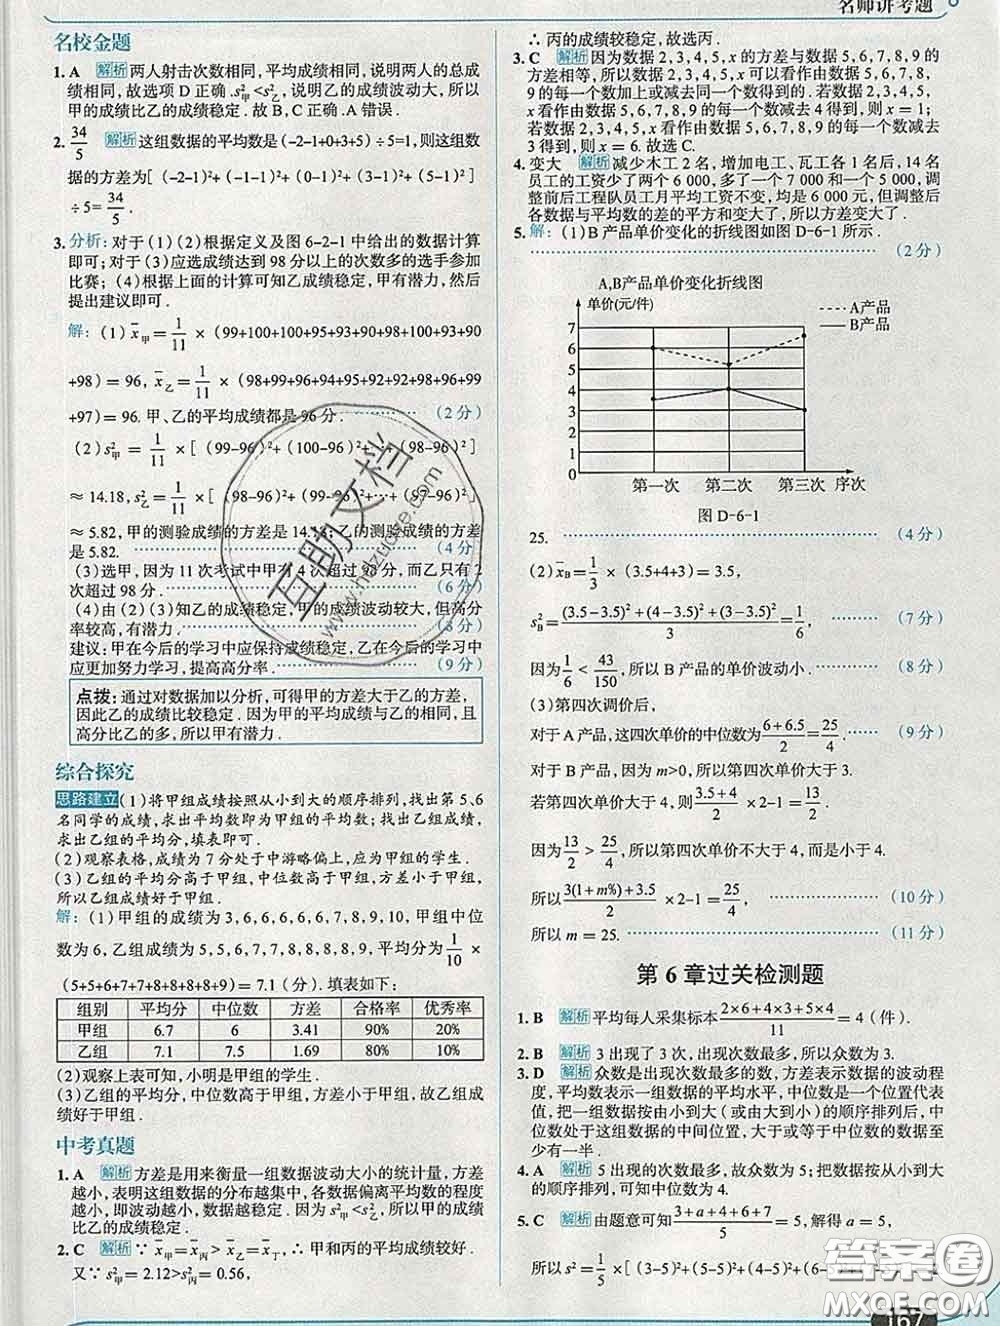 名师讲考题
名校金题
1. A 解析 两人射击次数相同,平均成绩相同,说明两人的总成
绩相同,故选项 D 正确.s²甲<s²乙,说明乙的成绩波动大,所以
甲的成绩比乙的成绩稳定.故 B,C 正确.A 错误.
2. 34/5 解析 这组数据的平均数是(-2-1+0+3+5)÷5=1,则这组数
据的方差为[(-2-1)²+(-1-1)²+(0-1)²+(3-1)²+(5-1)²]
÷5=34/5.
3. 分析:对于(1)(2)根据定义及图 6-2-1 中给出的数据计算
即可;对于(3)应选成绩达到 98 分以上的次数多的选手参加
比赛;(4)根据上面的计算可知乙成绩稳定,甲有潜力,然后
提出建议即可.
解:(1)x̄甲=1/11×(99+100+100+95+93+90+98+100+93+90
+98)=96,x̄乙=1/11×(98+99+96+94+95+92+92+98+96+99
+97)=96.甲、乙的平均成绩都是 96 分. (2 分)
(2)s²甲=1/11×[(99-96)²+(100-96)²+…+(98-96)²]
≈14.18,s²乙=1/11×[(98-96)²+(99-96)²+…+(97-96)²]
≈5.82,甲的测验成绩的方差是 14.18,乙的测验成绩的方差
是 5.82. (4 分)
(3)选甲,因为 11 次考试中甲有 4 次超过 98 分,而乙只有 2
次超过 98 分. (6 分)
(4)由(2)(3)知乙的成绩稳定,甲的成绩波动较大,但高分
率较高,有潜力. (8 分)
建议:甲在今后的学习中应保持成绩稳定,乙在今后的学习中
应更加努力学习,提高高分率. (9 分)
点拨:通过对数据加以分析,可得甲的方差大于乙的方差,
因此乙的成绩比较稳定.因为甲的平均成绩与乙的相同,且
高分比乙的多,所以甲有潜力.
综合探究
思路建立 (1)将甲组成绩按照从小到大的顺序排列,找出第 5、6
名同学的成绩,求出平均数即为甲组的平均数;找出乙组成绩,
求出乙组的平均分,填表即可.
(2)观察表格,成绩为 7 分处于中游略偏上,应为甲组的学生.
(3)乙组的平均分高于甲组,中位数高于甲组,方差小于甲组,
所以乙组成绩好于甲组.
解:(1)甲组的成绩为 3,6,6,6,6,6,7,8,9,10,甲组中位
数为 6,乙组成绩为 5,5,6,7,7,8,8,8,8,9,平均分为1/10×
(5+5+6+7+7+8+8+8+8+9)=7.1(分).填表如下:
组别 平均分 中位数 方差 合格率 优秀率
甲组 6.7 6 3.41 90% 20%
乙组 7.1 7.5 1.69 80% 10%
(2)观察上表可知,小明是甲组的学生.
(3)乙组的平均分,中位数高于甲组,方差小于甲组,故乙组成
绩好于甲组.
中考真题
1. A 解析 方差是用来衡量一组数据波动大小的统计量,方差
越小,表明这组数据的分布越集中,各数据偏离平均数的程度
越小,即波动越小,数据越稳定.因为 s²甲<s²乙,所以甲的成绩
比乙的成绩稳定.
2. C 解析 ∵ x̄甲=x̄丙>x̄乙=x̄丁,∴ 甲和丙的平均成绩较好.
又∵ s²甲=2.12>s²丙=0.56,
∴ 丙的成绩较稳定,故选丙.
3. C 解析 因为数据 2,3,4,5,x 的方差与数据 5,6,7,8,9 的
方差相等,所以数据 2,3,4,5,x 可以看作由数据 5,6,7,8,
9 的每一个数加上或减去同一个数得到的.若数据 2,3,4,5,
x 看作由数据 5,6,7,8,9 的每一个数减去 4 得到,则 x=1;
若数据 2,3,4,5,x 看作由数据 5,6,7,8,9 的每一个数减去
3 得到,则 x=6.故选C.
4. 变大 解析 减少木工 2 名,增加电工、瓦工各 1 名后,14 名
员工的工资少了两个 6 000,多了一个 7 000 和一个 5 000,调
整前后工程队员工月平均工资不变,均是 6 000 元,但调整后
各数据与平均数的差的平方和变大了,所以方差变大了.
5. 解:(1)B 产品单价变化的折线图如图 D-6-1 所示.
(2 分)
A,B产品单价变化折线图
单价(元/件)
A产品
B产品
7
6
5
4
3
2
1
0
第一次 第二次 第三次 序次
图 D-6-1
25. (4 分)
(2)x̄B=1/3×(3.5+4+3)=3.5,
s²B=((3.5-3.5)²+(4-3.5)²+(3-3.5)²)/3=1/6, (7 分)
因为1/6<43/150,所以 B 产品的单价波动小. (8 分)
(3)第四次调价后,
对于 A 产品,这四次单价的中位数为(6+6.5)/2=25/4. (9 分)
对于 B 产品,因为 m>0,所以第四次单价大于 3.
若第四次单价大于 4,则(3.5+4)/2×2-1=13/2.
因为13/2>25/4,所以第四次单价不大于 4,而是小于 4.
所以(3(1+m%)+3.5)/2×2-1=25/4, (10 分)
所以 m=25. (11 分)
第 6 章过关检测题
1. B 解析 平均每人采集标本(2×6+4×3+5×4)/11=4(件).
2. B 解析 3 出现了 3 次,出现次数最多,所以众数为 3.
3. D 解析 众数是出现次数最多的数,方差表示数据的波动程
度,平均数表示一组数据的平均水平,中位数是一个位置代表
值,把一组数据按由小到大(或由大到小)的顺序排列后,中
位数处于这组数据的中间位置,大于或等于中位数的数至少
有一半.
4. A 解析 5 出现的次数最多,故众数为 5;把数据按从小到大
的顺序排列,可知中位数为 4.
5. C 解析 由题意可知(3+a+4+6+7)/5=5,解得 a=5,
所以 s²=1/5×[(3-5)²+(5-5)²+(4-5)²+(6-5)²
167
互助文档
www.hdzuoye.com
答案圈
MXQE.COM